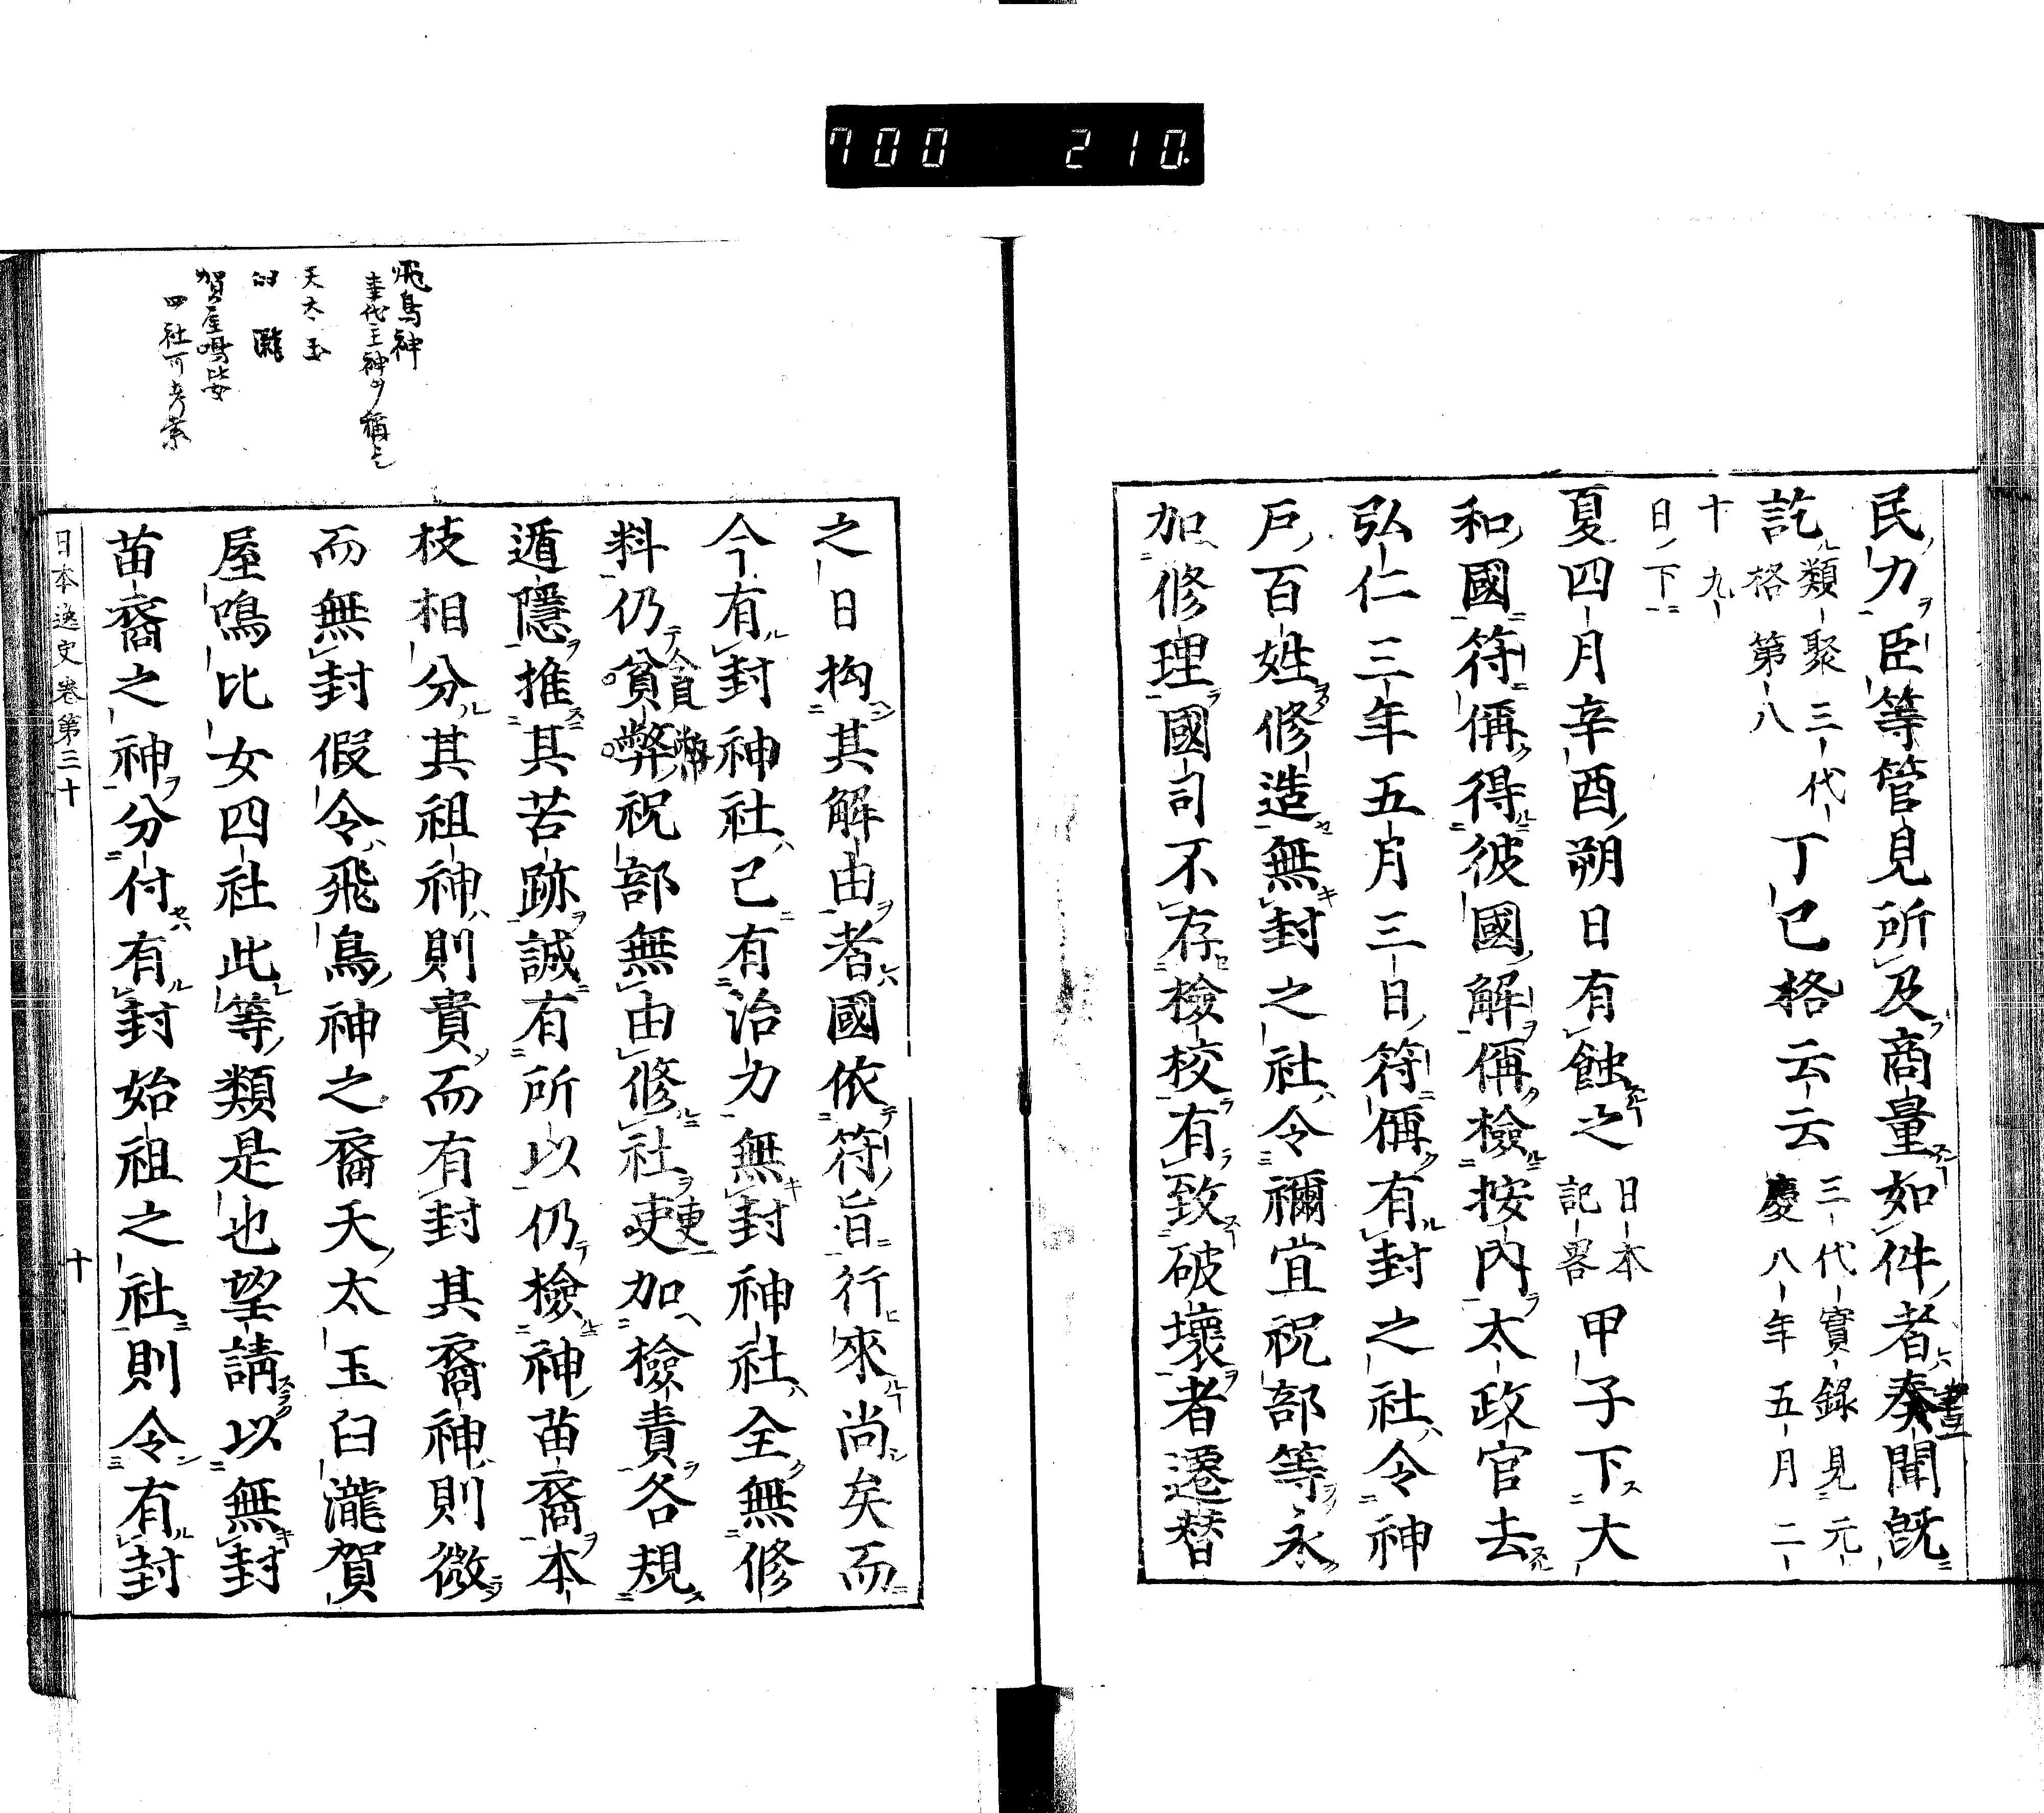 700 210.
民力臣等管見所及商量如件者奏聞既
訖類聚三代
格第八丁巳格云云三代實錄見元
慶八年五月二
十九
日下
夏四月辛酉朔日有蝕之日本
記畧甲子下大
和國符偁得彼國解偁檢按內太政官去
弘仁三年五月三日符偁有封之社令神
戶百姓修造無封之社令禰宜祝部等永
加修理國司不存檢校有致破壞者遷替
之日拘其解由者國依符旨行來尚矣而
今有封神社已有治力無封神社全無修
料仍貧弊祝部無由修社吏加檢責各規
遁隱推其苦跡誠有所以仍檢神苗裔本
枝相分其祖神則貴而有封其裔神則微
而無封假令飛鳥神之裔天太玉臼瀧賀
屋鳴比女四社此等類是也望請以無封
苗裔之神分付有封始祖之社則令有封
日本逸史卷第三十
十
飛鳥神
事代主神ヲ稱ス
天太玉
臼瀧
賀屋鳴比女
四社可考索